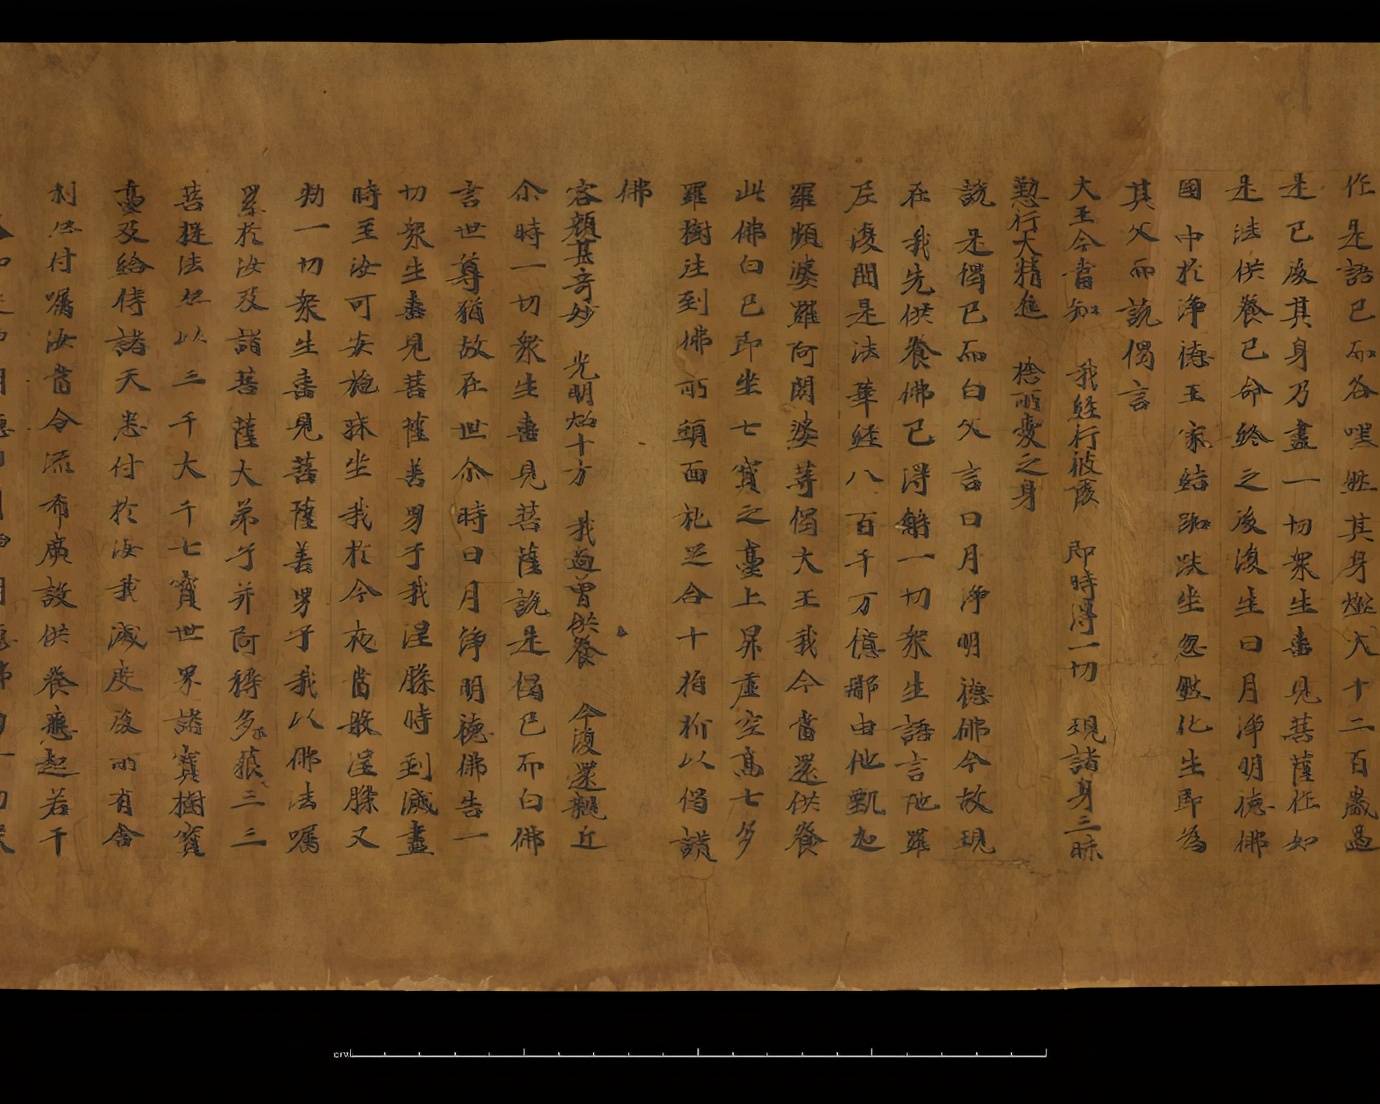 作是語已而各嘿然其身燃火十二百歲過
是已後其身乃盡一切衆生憙見菩薩作如
是法供養已命終之後復生日月淨明德佛
國中於淨德王家結跏趺坐忽然化生即為
其父而說偈言
大王今當知　我経行彼處　即時得一切　現諸身三昧
懃行大精進　捨所愛之身
說是偈已而白父言日月淨明德佛今故現
在我先供養佛已得解一切衆生語言陁羅
尼復聞是法華経八百千万億那由他甄迦
羅頻婆羅阿閦婆等偈大王我今當還供養
此佛白已即坐七寶之臺上昇虛空高七多
羅樹往到佛所頭面礼足合十指爪以偈讚
佛
容顏甚奇妙　光明照十方　我適曾供養　今復還親近
尒時一切衆生憙見菩薩說是偈已而白佛
言世尊猶故在世尒時日月淨明德佛告一
切衆生憙見菩薩善男子我涅槃時到滅盡
時至汝可安施床坐我於今夜當般涅槃又
勑一切衆生憙見菩薩善男子我以佛法囑
累於汝及諸菩薩大弟子并阿耨多藐三三
菩提法亦以三千大千七寶世界諸寶樹寶
臺及給侍諸天悉付於汝我滅度後所有舍
利亦付囑汝當令流布廣設供養應起若千
cm